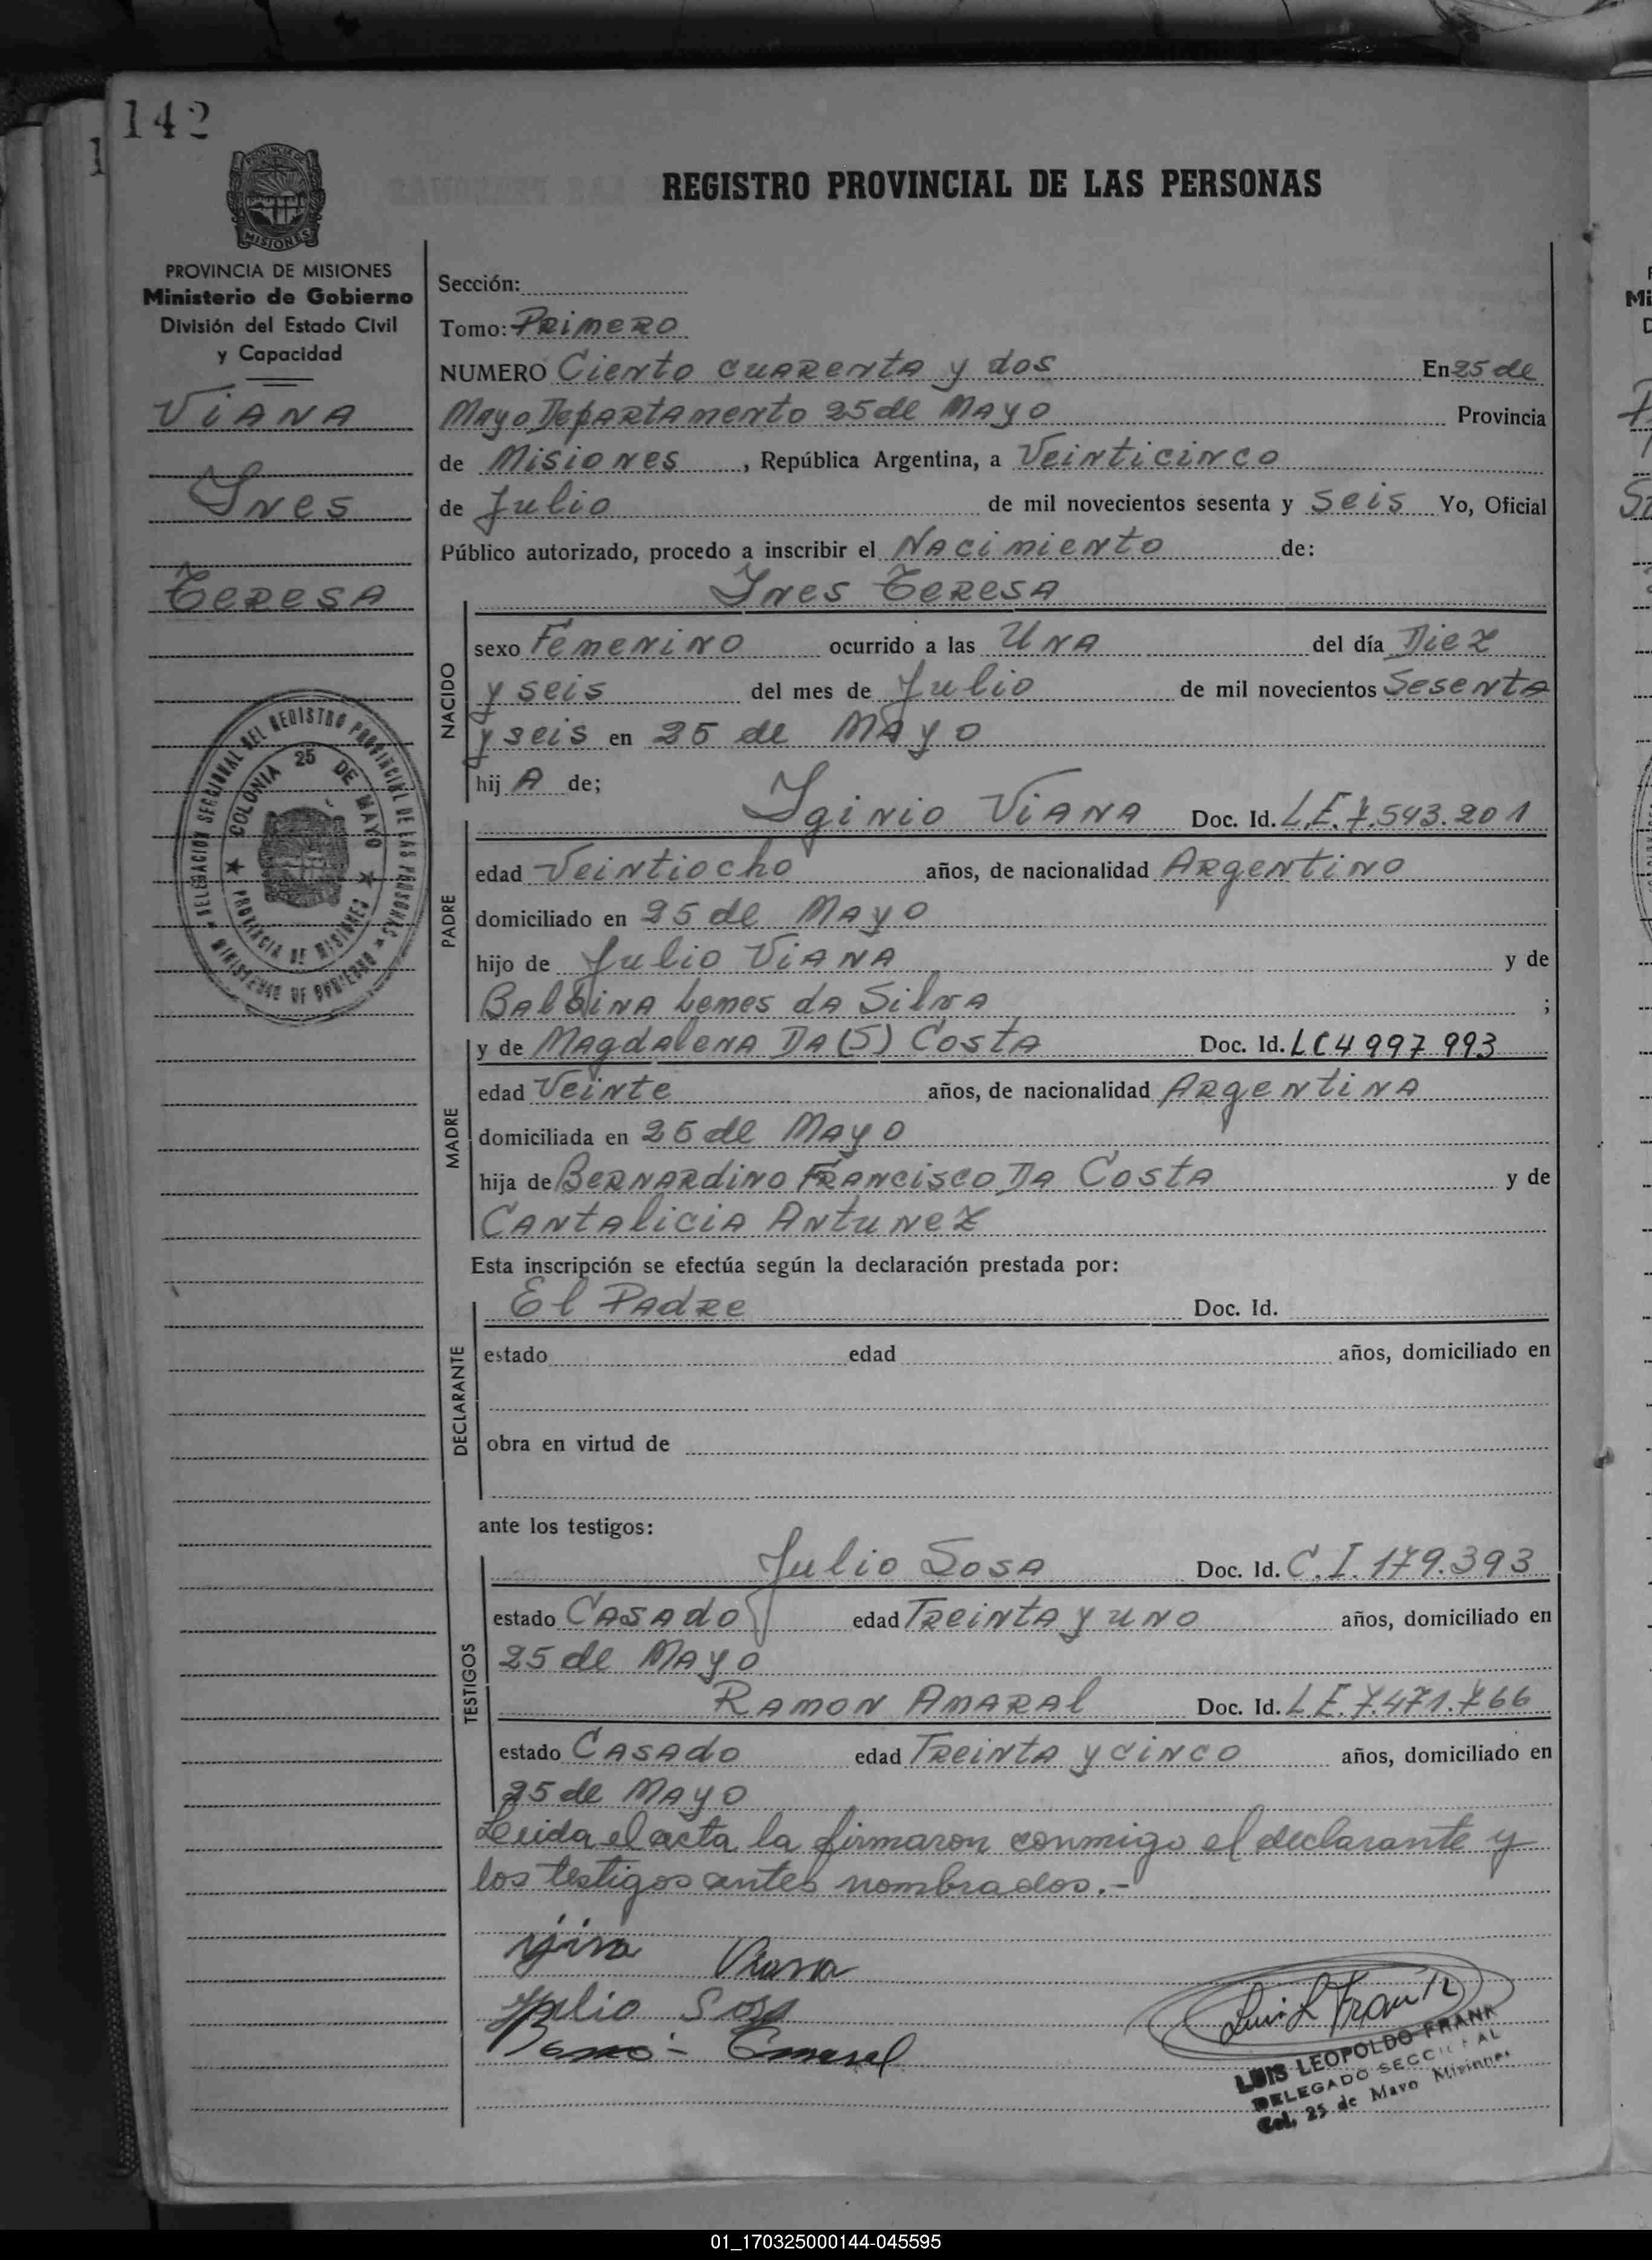 142
REGISTRO PROVINCIAL DE LAS PERSONAS
PROVINCIA DE MISIONES
Ministerio de Gobierno
División del Estado Civil
y Capacidad
VIANA
Ynes
TERESA
DELEGACION SECCIONAL DEL REGISTRO PROVINCIAL DE LAS PERSONAS
MINISTERIO DE GOBIERNO
COLONIA 25 DE MAYO
PROVINCIA DE MISIONES
Sección:
Tomo: Primero
NUMERO Ciento cuarenta y dos En 25 de
Mayo Departamento 25 de Mayo Provincia
de Misiones, República Argentina, a Veinticinco
de Julio de mil novecientos sesenta y seis Yo, Oficial
Público autorizado, procedo a inscribir el Nacimiento de:
Ynes Teresa
NACIDO
sexo Femenino ocurrido a las Una del día Diez
y seis del mes de Julio de mil novecientos Sesenta
y seis en 25 de Mayo
hij A de;
Yginio Viana Doc. Id. L.E. 7.543.201
PADRE
edad Veintiocho años, de nacionalidad Argentino
domiciliado en 25 de Mayo
hijo de Julio Viana y de
Balbina Lemes da Silva ;
y de Magdalena DA (S) Costa Doc. Id. LC 4 997 993
MADRE
edad Veinte años, de nacionalidad Argentina
domiciliada en 25 de Mayo
hija de Bernardino Francisco Da Costa y de
Cantalicia Antunez
Esta inscripción se efectúa según la declaración prestada por:
El Padre Doc. Id.
DECLARANTE
estado edad años, domiciliado en
obra en virtud de
ante los testigos:
Julio Sosa Doc. Id. C.I. 179.393
TESTIGOS
estado Casado edad Treinta y uno años, domiciliado en
25 de Mayo
Ramon Amaral Doc. Id. L E. 7.471.766
estado Casado edad Treinta y cinco años, domiciliado en
25 de Mayo
Leida el acta la firmaron conmigo el declarante y
los testigos antes nombrados.-
Viana
Julio Sosa
Luis L Frank
LUIS LEOPOLDO FRANK
DELEGADO SECCIONAL
Col. 25 de Mayo Misiones
01_170325000144-045595